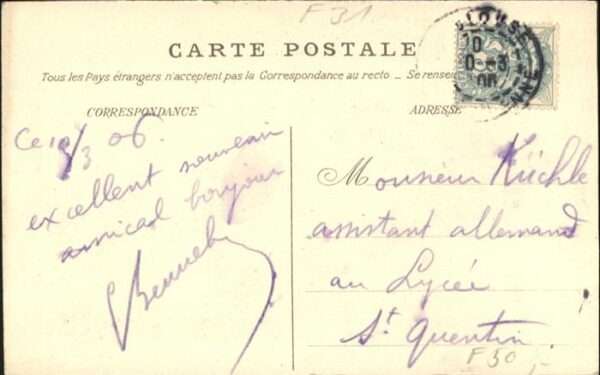 F 31
CARTE POSTALE
Tous les Pays étrangers n'acceptent pas la Correspondance au recto _ Se rensei
CORRESPONDANCE
ADRESSE
LOUSE
10
3
06
NNE
Ce 10/3 06.
excellent souvenir
amical bonjour
Monsieur Küchle
assistant allemand
au Lycée
St Quentin
F 50,-